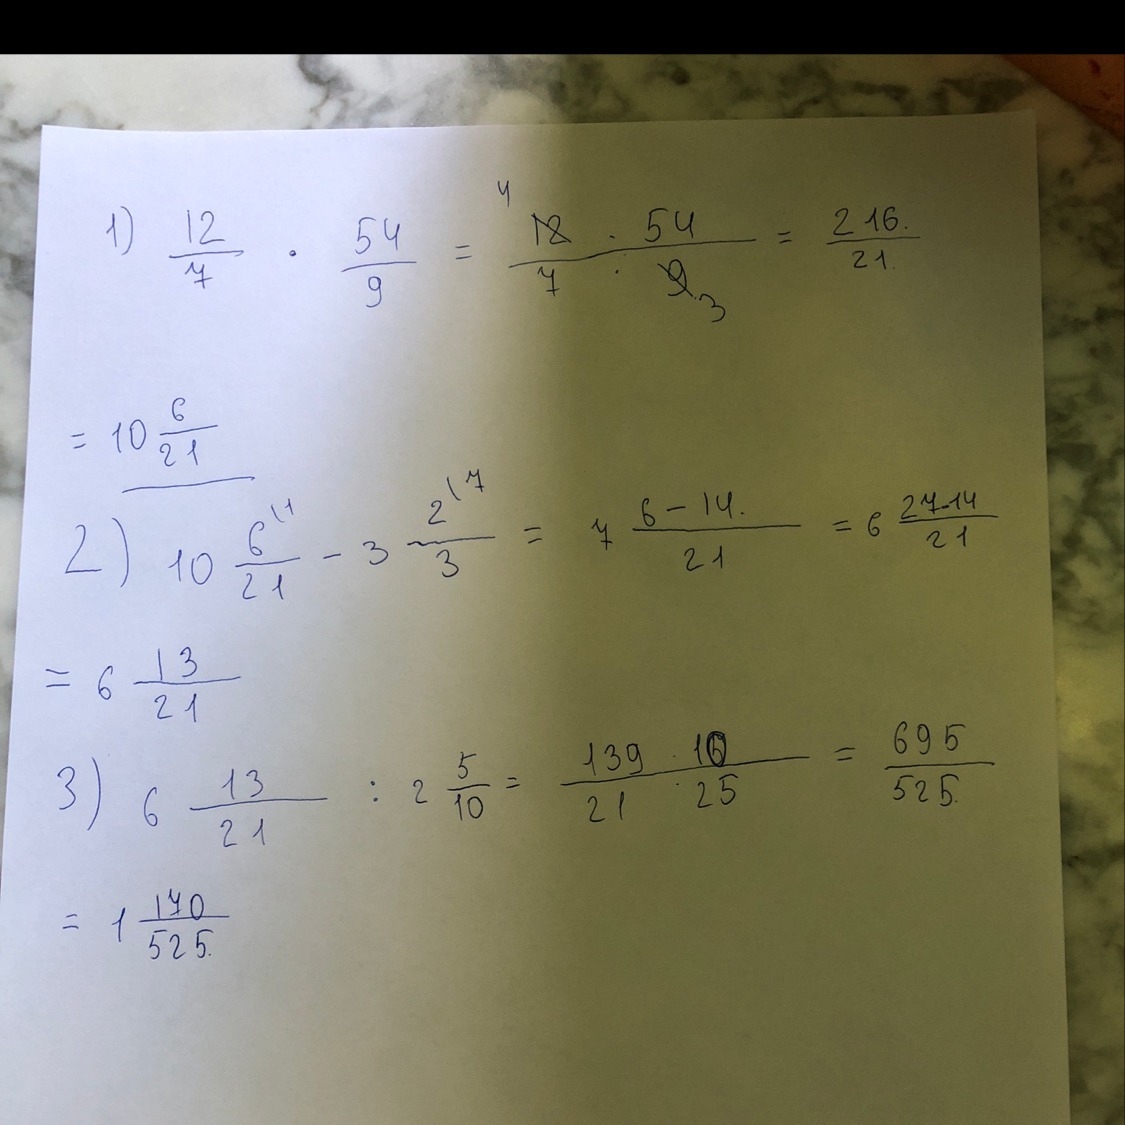 1) 12/7 · 54/9 = 4 12 · 54 / 7 · 9 3 = 216. / 21.
= 10 6/21
2) 10 6\1/21 - 3 2\7/3 = 7 6-14. / 21 = 6 27-14 / 21
= 6 13/21
3) 6 13/21 : 2 5/10 = 139 · 10 / 21 · 25 = 695 / 525.
= 1 170/525.